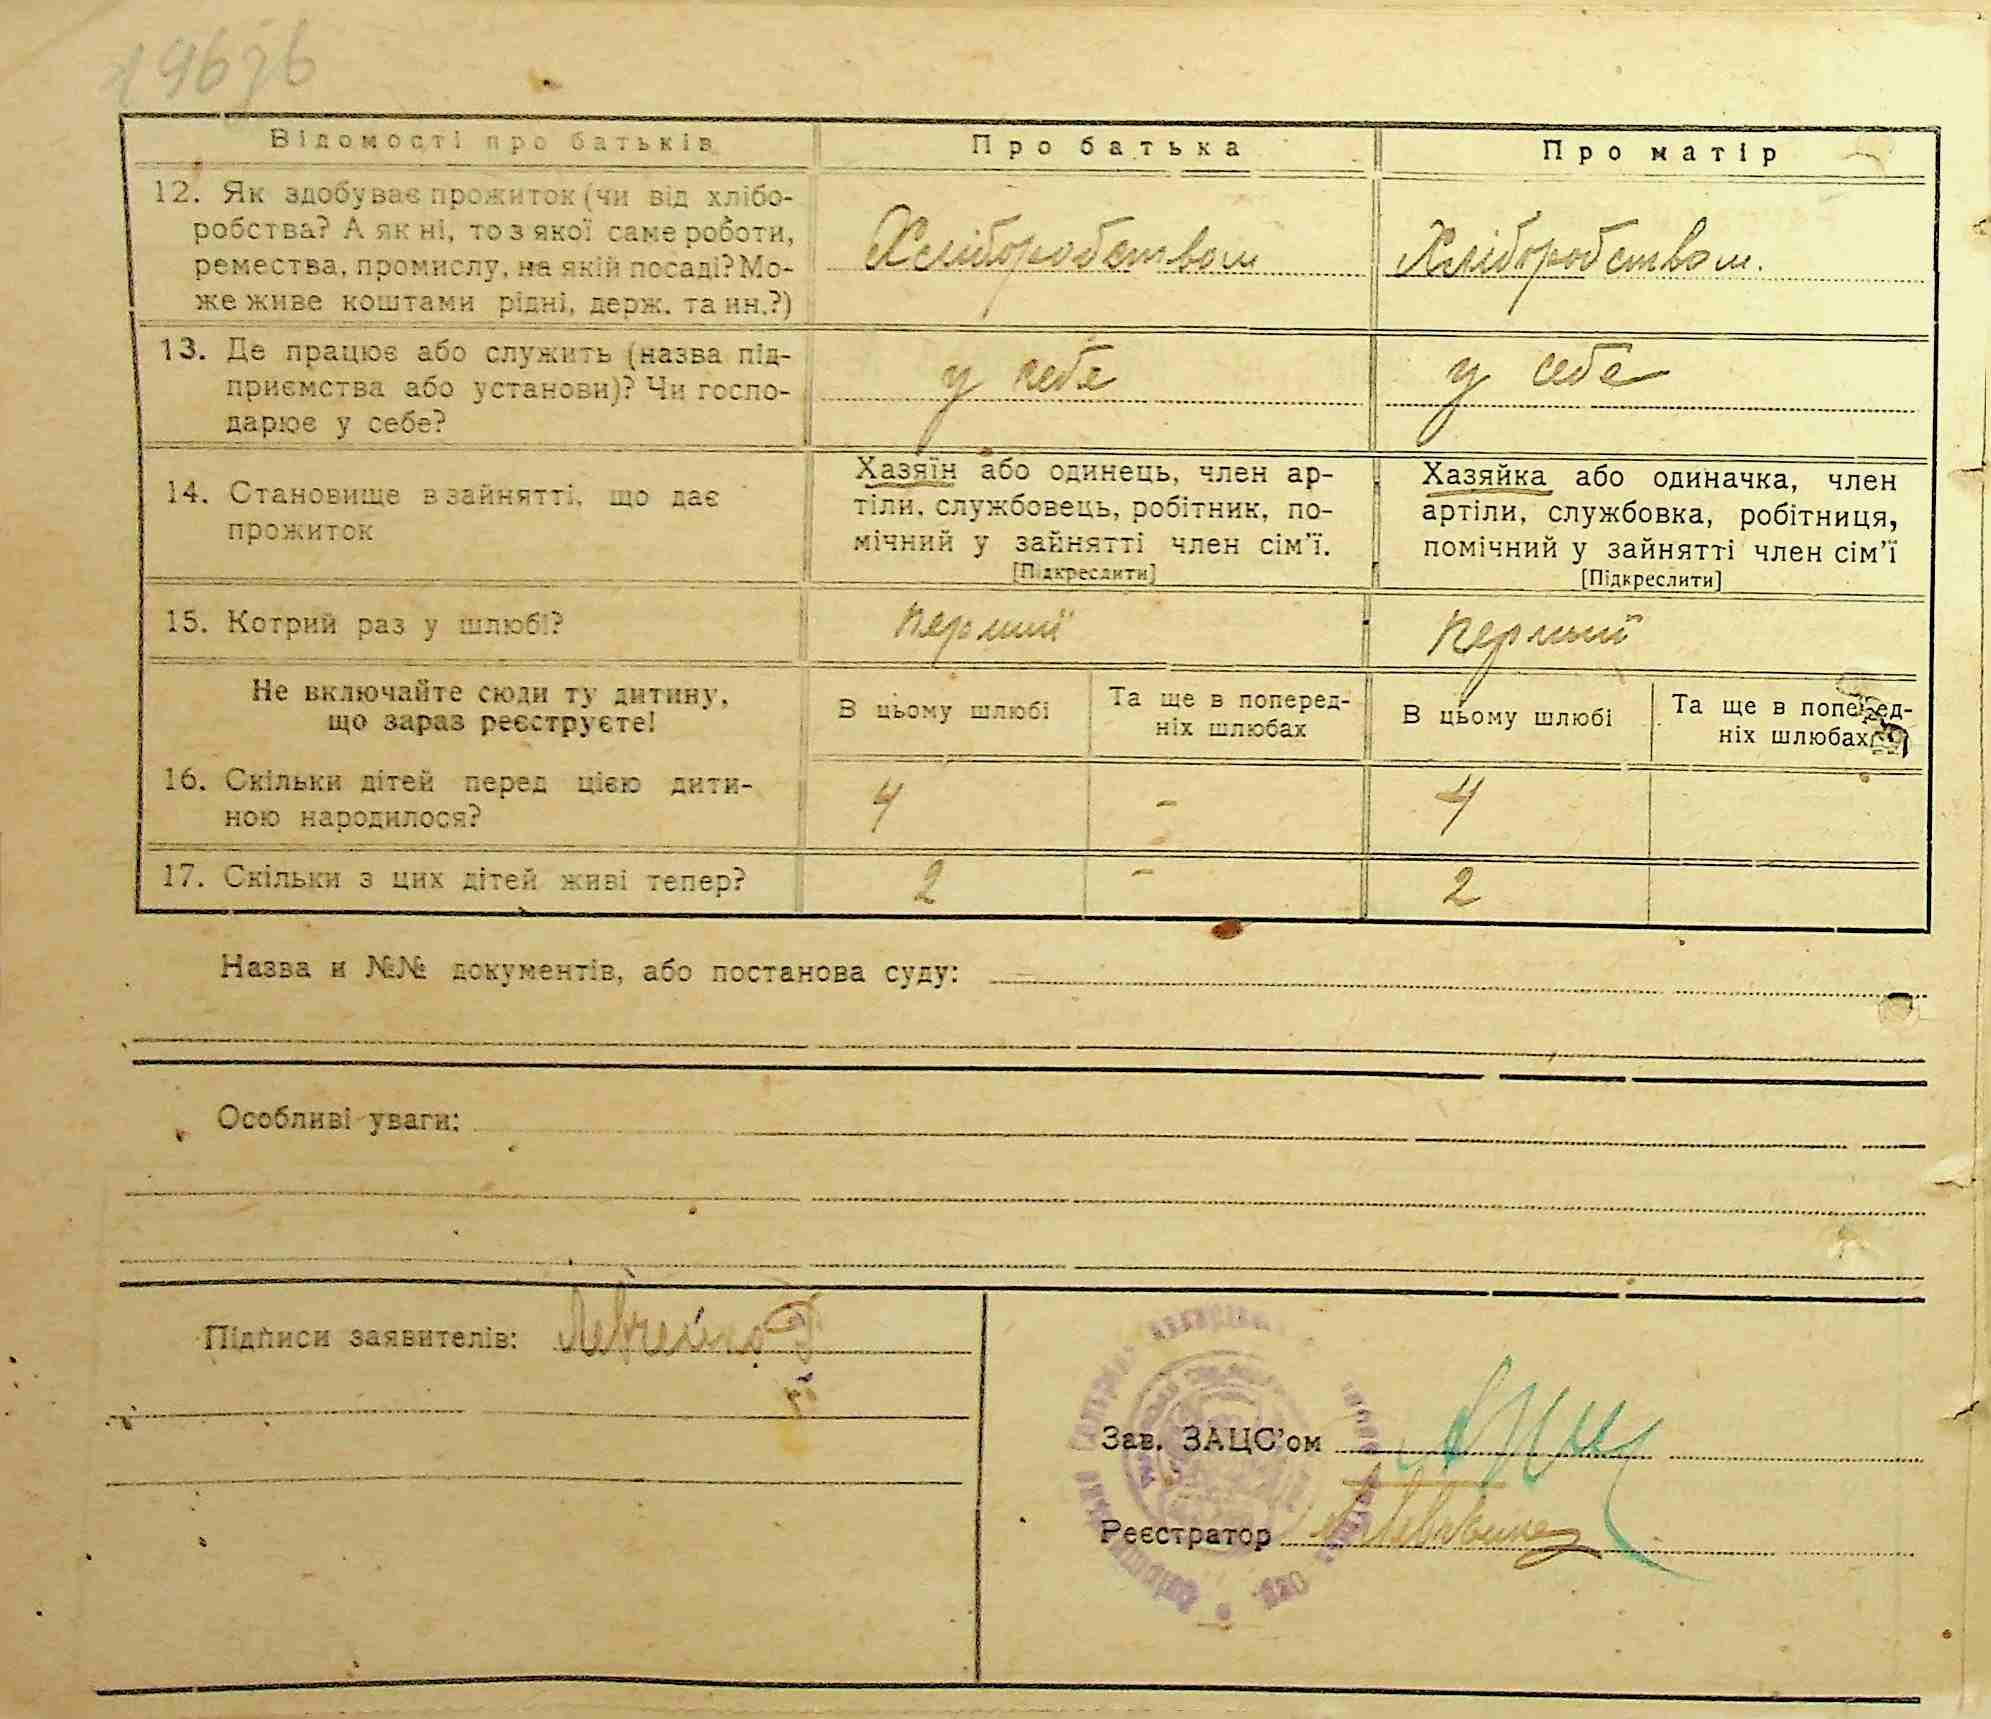 Відомості про батьків
Про батька
Про матір
12. Як здобуває прожиток (чи від хлібо-
робства? А як ні, то з якої саме роботи,
ремества, промислу, на якій посаді? Мо-
же живе коштами рідні, держ. та ин.?)
Хліборобством
Хліборобством.
13. Де працює або служить (назва під-
приємства або установи)? Чи госпо-
дарює у себе?
у себе
у себе
14. Становище в зайнятті, що дає
прожиток
Хазяїн або одинець, член ар-
тіли, службовець, робітник, по-
мічний у зайнятті член сім'ї.
[Підкреслити]
Хазяйка або одиначка, член
артіли, службовка, робітниця,
помічний у зайнятті член сім'ї
[Підкреслити]
15. Котрий раз у шлюбі?
перший
перший
Не включайте сюди ту дитину,
що зараз реєструєте!
В цьому шлюбі
Та ще в поперед-
ніх шлюбах
В цьому шлюбі
Та ще в поперед-
ніх шлюбах
16. Скільки дітей перед цією дити-
ною народилося?
4
-
4
17. Скільки з цих дітей живі тепер?
2
-
2
Назва и №№ документів, або постанова суду:
Особливі уваги:
Підписи заявителів:
Зав. ЗАЦС'ом
Реєстратор